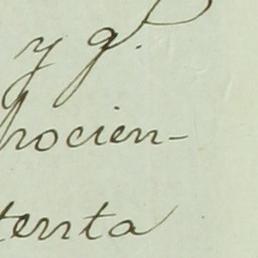 y g.
hocien-
tenta